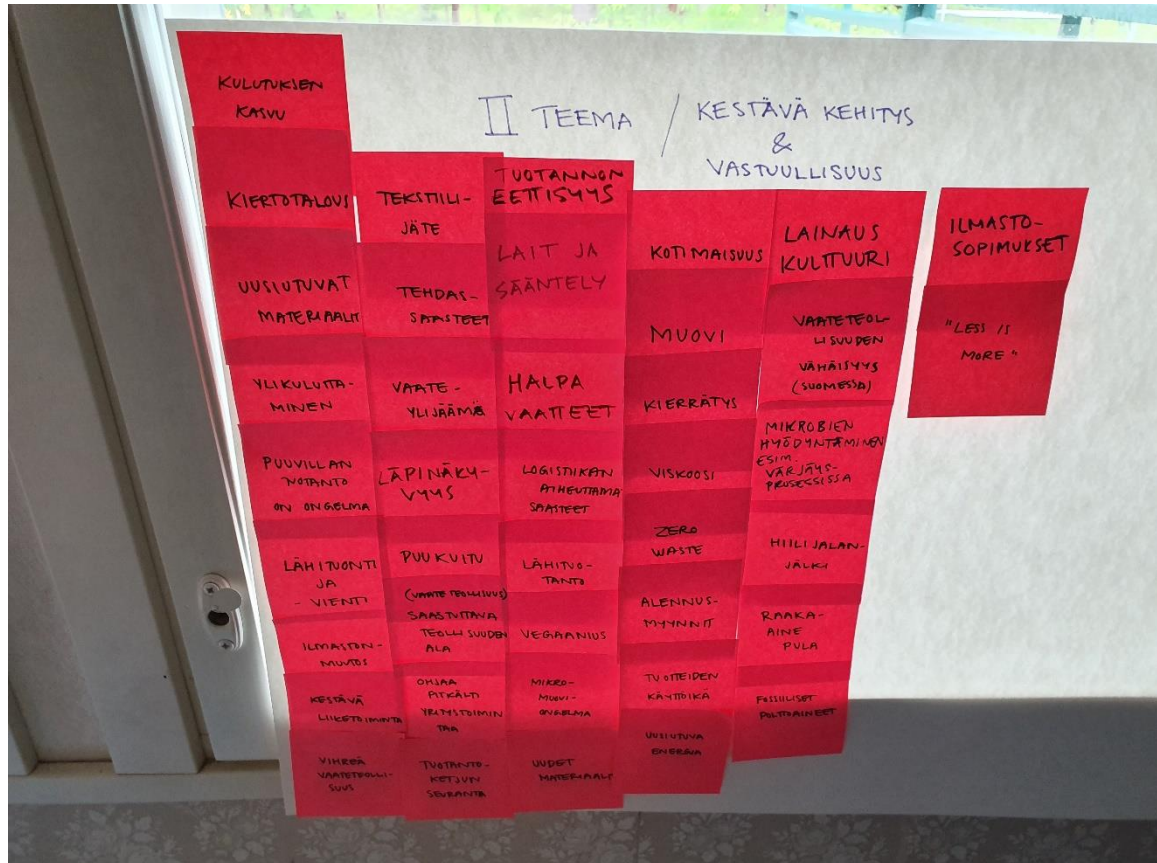 II TEEMA / KESTÄVÄ KEHITYS
&
VASTUULLISUUS
KULUTUKSEN
KASVU
KIERTOTALOUS
UUSIUTUVAT
MATERIAALIT
YLIKULUTTA-
MINEN
PUUVILLAN
TUOTANTO
ON ONGELMA
LÄHITUONTI
JA
- VIENTI
ILMASTON-
MUUTOS
KESTÄVÄ
LIIKETOIMINTA
VIHREÄ
VAATETEOLLI-
SUUS
TEKSTIILI-
JÄTE
TEHDAS-
SAASTEET
VAATE-
YLIJÄÄMÄ
LÄPINÄKY-
VYYS
PUUKUITU
(VAATETEOLLISUUS)
SAASTUTTAVA
TEOLLISUUDEN
ALA
OHJAA
PITKÄLTI
YRITYSTOIMIN
TAA
TUOTANTO-
KETJUN
SEURANTA
TUOTANNON
EETTISYYS
LAIT JA
SÄÄNTELY
HALPA
VAATTEET
LOGISTIIKAN
AIHEUTTAMA
SAASTEET
LÄHITUO-
TANTO
VEGAANIUS
MIKRO-
MUOVI-
ONGELMA
UUDET
MATERIAALIT
KOTIMAISUUS
MUOVI
KIERRÄTYS
VISKOOSI
ZERO
WASTE
ALENNUS-
MYYNNIT
TUOTTEIDEN
KÄYTTÖIKÄ
UUSIUTUVA
ENERGIA
LAINAUS
KULTTUURI
VAATETEOL-
LISUUDEN
VÄHÄISYYS
(SUOMESSA)
MIKROBIEN
HYÖDYNTÄMINEN
ESIM.
VÄRJÄYS-
PROSESSISSA
HIILIJALAN-
JÄLKI
RAAKA-
AINE
PULA
FOSSIILISET
POLTTOAINEET
ILMASTO-
SOPIMUKSET
"LESS IS
MORE"